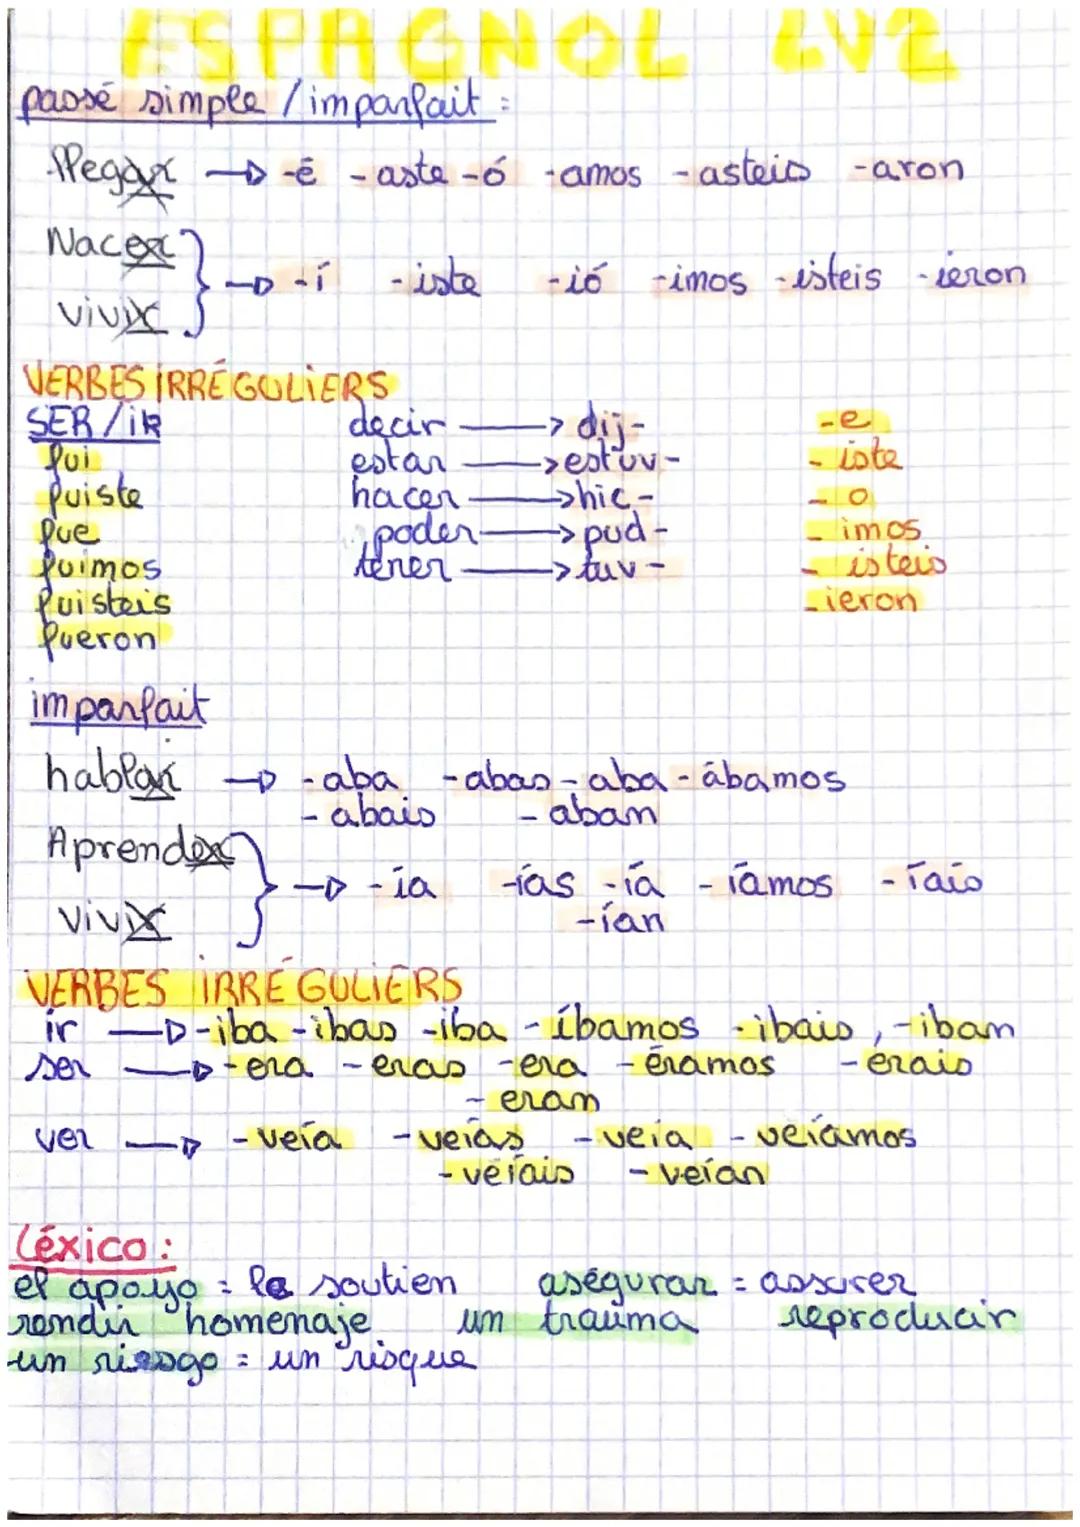 ESPAGNOL LV2
passé simple / imparfait :
llegar → -é -aste -ó -amos -asteis -aron
Nacer
vivir } → -í -iste -ió -imos -isteis -ieron
VERBES IRRÉGULIERS
SER / iR decir → dij- -e
fui estar → estuv- - iste
fuiste hacer → hic- - o
fue poder → pud- - imos
fuimos tener → tuv- - isteis
fuisteis - ieron
fueron
imparfait
hablar → -aba -abas -aba -ábamos
-abais -aban
Aprender
vivir } → -ía -ías -ía -íamos -íais
-ían
VERBES IRRÉGULIERS
ir → -iba -ibas -iba -íbamos -ibais, -iban
ser → -era -eras -era -éramos -érais
-eran
ver → -veía -veías -veia -veíamos
-veíais -veían
Léxico :
el apoyo = le soutien asegurar = assurer
rendir homenaje un trauma reproducir
un riesgo = un risque